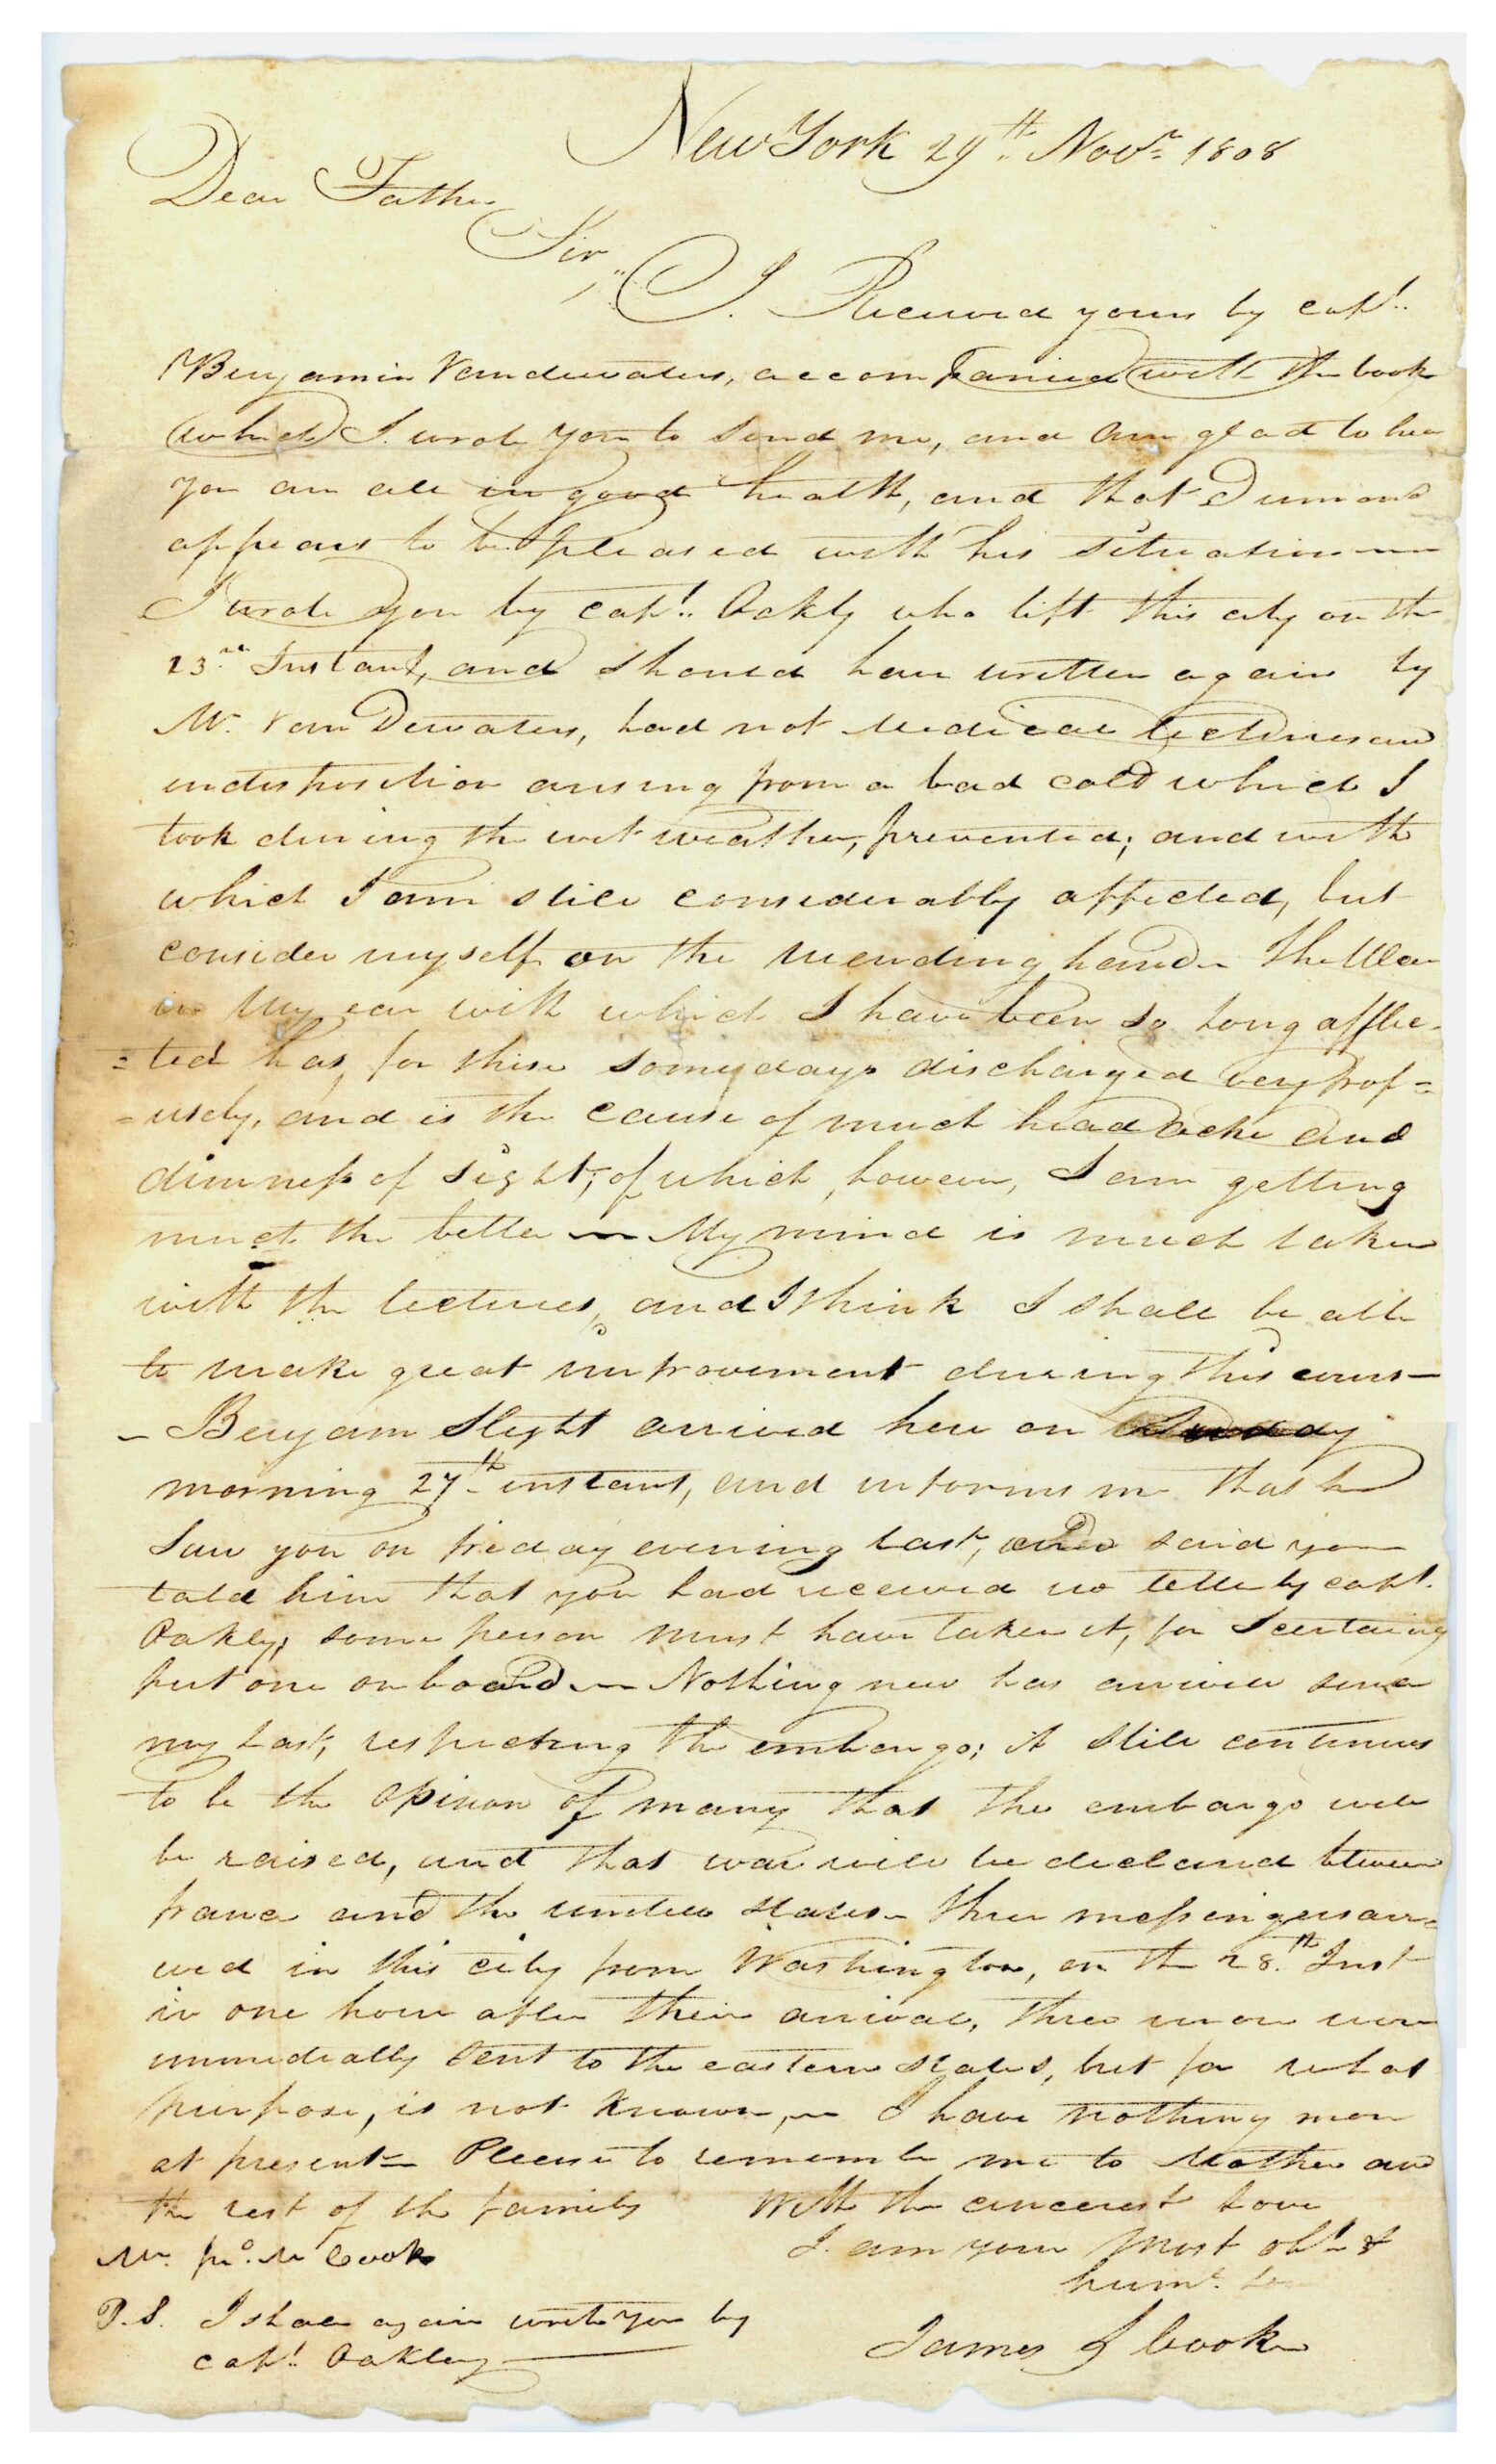 New York 29th Novr 1808
Dear Father
Sir,,
I. Received yours by capt.
Benjamin Vandewaters, accompanied with the book
which I. wrote you to send me, and am glad to hear
you are all in good health, and that Dumond
appears to be pleased with his situation
I wrote you by capt. Oakly who left this city on the
23rd Instant, and should have written again by
Mr. Van Dewaters, had not Medical lectures and
indisposition arising from a bad cold which I
took during the wet weather, prevented; and with
which I am still considerably affected, but
consider myself on the mending hand. The Ulcer
in My ear with which I have been so long afflic-
=ted has, for these some days discharged very prof=
=usely, and is the cause of much head ache and
dimness of sight; of which, however, I am getting
much the better My mind is much taken
with the lectures, and I think I shall be able
to make great improvement during this cours
Benjam Sleght arrived here on Sunday
morning 27th instant, and informs me that he
saw you on friday evening last, and said you
told him that you had received no letter by capt.
Oakley; some person must have taken it, for I certainly
put one on board Nothing new has arrived since
my last, respecting the embargo; it still continues
to be the opinion of many that the embargo will
be raised, and that war will be declared between
france and the united states three messengers arr=
ived in this city from Washington, on the 28th Inst
in one hour after their arrival, three more were
immediatly sent to the eastern states, but for what
purpose, is not known, I have nothing more
at present Please to remember me to Mother and
the rest of the family With the sincerest love
I. am your Most obt. &
humt.
Mr. Jno. M Cook
P.S. I shall again write you by
capt. Oakley
James J Cook